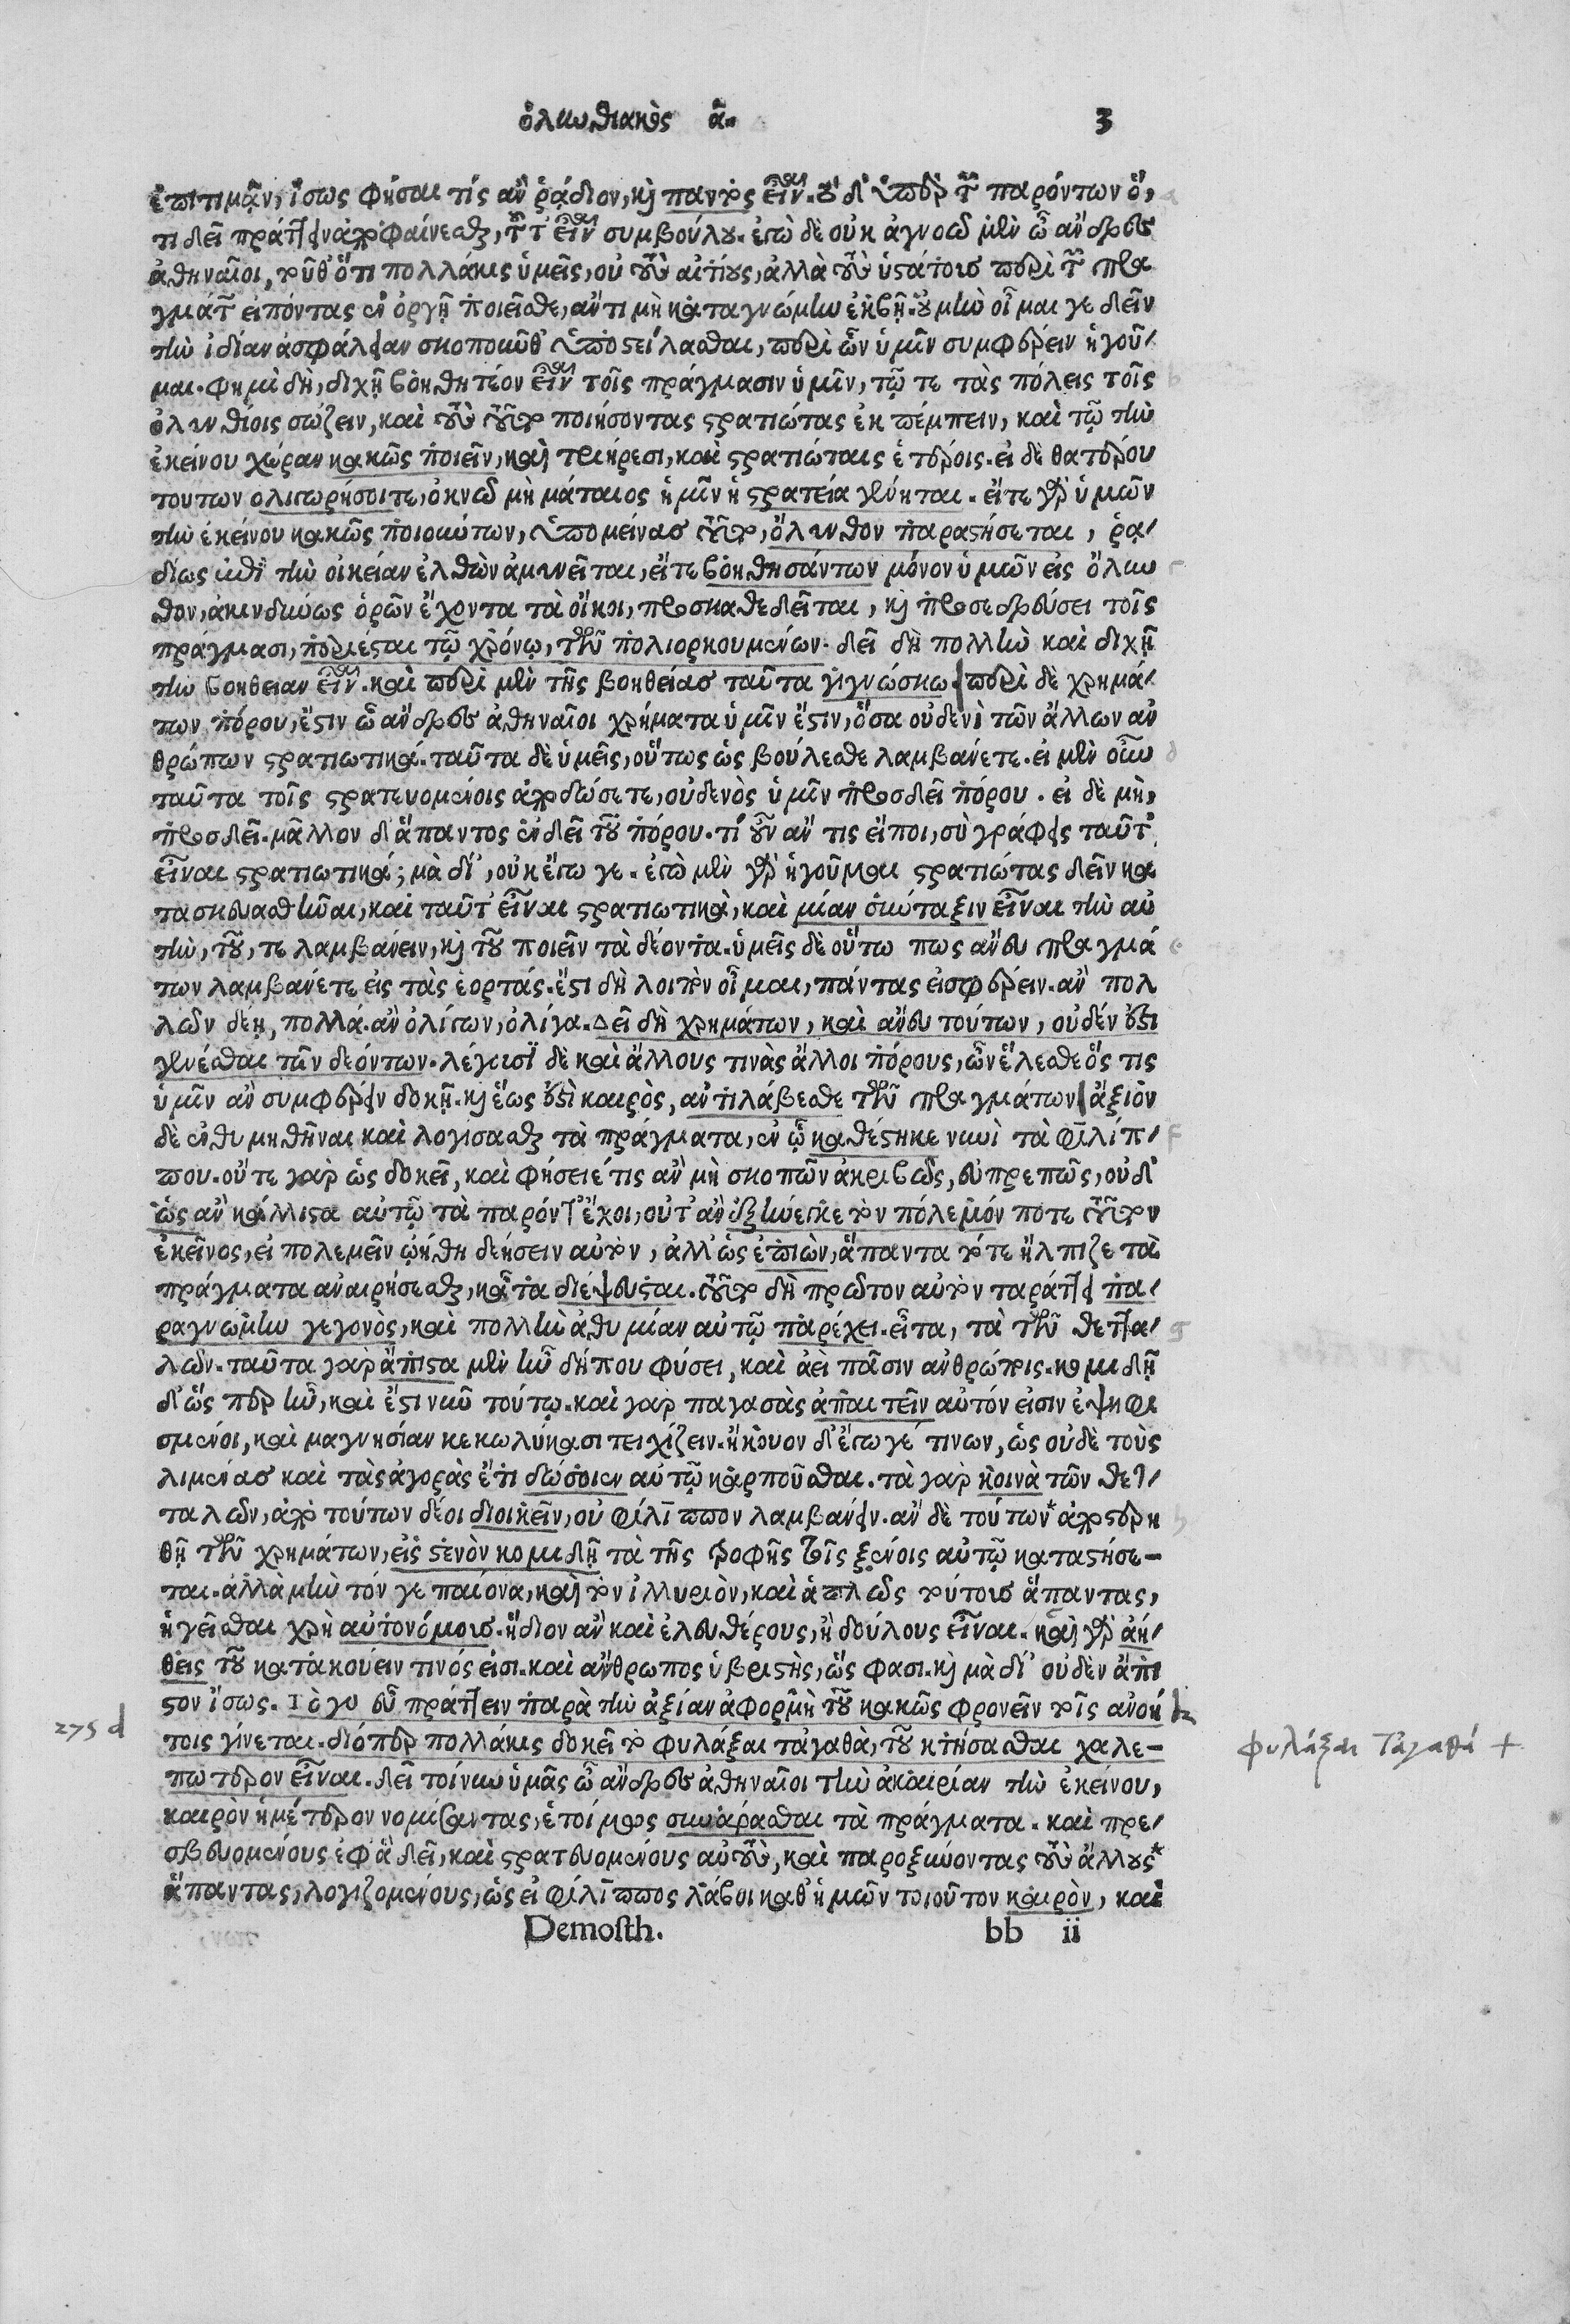 ὀλυνθιακὸς ᾱ. 3
ἐπιτιμᾷν, ἴσως φήσαι τίς ἂν ῥᾴδιον, καὶ παντὸς εἶναι. τὸ δ' ὑπὲρ τῶν παρόντων ὅ,
τι δεῖ πράττειν ἀποφαίνεσθαι, τοῦτ' εἶναι συμβούλου. ἐγὼ δὲ οὐκ ἀγνοῶ μὲν ὦ ἄνδρες
ἀθηναῖοι, τοῦθ' ὅτι πολλάκις ὑμεῖς, οὐ τοὺς αἰτίους, ἀλλὰ τοὺς ὑστάτους περὶ τῶν πρα
γμάτων εἰπόντας ἐν ὀργῇ ποιεῖσθε, ἄν τι μὴ κατὰ γνώμην ἐκβῇ. οὐ μὴν οἶμαι γε δεῖν
τὴν ἰδίαν ἀσφάλειαν σκοποῦνθ' ὑποστείλασθαι, περὶ ὧν ὑμῖν συμφέρειν ἡγοῦ/
μαι. φημὶ δὴ, διχῇ βοηθητέον εἶναι τοῖς πράγμασιν ὑμῖν, τῷ τε τὰς πόλεις τοῖς
ὀλυνθίοις σώζειν, καὶ τοὺς τοῦτο ποιήσοντας στρατιώτας ἐκπέμπειν, καὶ τῷ τὴν
ἐκείνου χώραν κακῶς ποιεῖν, καὶ τριήρεσι, καὶ στρατιώταις ἑτέροις. εἰ δὲ θατέρου
τουτων ὀλιγωρήσοιτε, ὀκνῶ μὴ μάταιος ἡμῖν ἡ στρατεία γένηται. εἴτε γὰρ ὑμῶν
τὴν ἐκείνου κακῶς ποιούντων, ὑπομείνας τοῦτο, ὄλυνθον παραστήσεται, ῥα/
δίως ἐπὶ τὴν οἰκείαν ἐλθὼν ἀμυνεῖται, εἴτε βοηθησάντων μόνον ὑμῶν εἰς ὄλυν
θον, ἀκινδύνως ὁρῶν ἔχοντα τὰ οἴκοι, προσκαθεδεῖται, καὶ προσεδρεύσει τοῖς
πράγμασι, περιέσται τῷ χρόνῳ, τῶν πολιορκουμένων. δεῖ δὴ πολλὴν καὶ διχῇ
τὴν βοήθειαν εἶναι. καὶ περὶ μὲν τῆς βοηθείας ταῦτα γιγνώσκω. περὶ δὲ χρημά/
των πόρου, ἔστιν ὦ ἄνδρες ἀθηναῖοι χρήματα ὑμῖν ἔστιν, ὅσα οὐδενὶ τῶν ἄλλων ἀν
θρώπων στρατιωτικά. ταῦτα δὲ ὑμεῖς, οὕτως ὡς βούλεσθε λαμβάνετε. εἰ μὲν οὖν
ταῦτα τοῖς στρατευομένοις ἀποδώσετε, οὐδενὸς ὑμῖν προσδεῖ πόρου. εἰ δὲ μὴ,
προσδεῖ. μᾶλλον δ' ἅπαντος ἐνδεῖ τοῦ πόρου. τί οὖν ἄν τις εἴποι, σὺ γράφεις ταῦτ'
εἶναι στρατιωτικά; μὰ δί', οὐκ ἔγωγε. ἐγὼ μὲν γὰρ ἡγοῦμαι στρατιώτας δεῖν κα
τασκευασθῆναι, καὶ ταῦτ' εἶναι στρατιωτικὰ, καὶ μίαν σύνταξιν εἶναι τὴν αὐ
τὴν, τοῦ, τε λαμβάνειν, καὶ τοῦ ποιεῖν τὰ δέοντα. ὑμεῖς δὲ οὕτω πως ἄνευ πραγμά
των λαμβάνετε εἰς τὰς ἑορτάς. ἔστι δὴ λοιπὸν οἶμαι, πάντας εἰσφέρειν. ἂν πολ
λῶν δέῃ, πολλά. ἂν ὀλίγων, ὀλίγα. Δεῖ δὴ χρημάτων, καὶ ἄνευ τούτων, οὐδέν ἐστι
γενέσθαι τῶν δεόντων. λέγουσϊ δὲ καὶ ἄλλους τινὰς ἄλλοι πόρους, ὧν ἕλεσθε ὅς τις
ὑμῖν ἂν συμφέρειν δοκῇ. καὶ ἕως ἐστὶ καιρὸς, ἀντιλάβεσθε τῶν πραγμάτων. ἄξιον
δὲ ἐνθυμηθῆναι καὶ λογίσασθαι τὰ πράγματα, ἐν ᾧ καθέστηκε νυνὶ τὰ φιλίπ/
που. οὔτε γὰρ ὡς δοκεῖ, καὶ φήσειέ τις ἂν μὴ σκοπῶν ἀκριβῶς, εὐπρεπῶς, οὐδ'
ὡς ἂν κάλλιστα αὐτῷ τὰ παρόντ' ἔχοι, οὔτ' ἂν ἐξήνεγκε τὸν πόλεμόν ποτε τοῦτον
ἐκεῖνος, εἰ πολεμεῖν ᾠήθη δεήσειν αὐτὸν, ἀλλ' ὡς ἐπιὼν, ἅπαντα τότε ἤλπιζε τὰ
πράγματα ἀναιρήσεσθαι, κᾆτα διέψευσται. τοῦτο δὴ πρῶτον αὐτὸν ταράττει πα/
ραγνώμην γεγονὸς, καὶ πολλὴν ἀθυμίαν αὐτῷ παρέχει. εἶτα, τὰ τῶν θεττα/
λῶν. ταῦτα γὰρ ἄπιστα μὲν ἦν δήπου φύσει, καὶ ἀεὶ πᾶσιν ἀνθρώποις. κομιδῇ
δ' ὥσπερ ἦν, καὶ ἔστι νῦν τούτῳ. καὶ γὰρ παγασὰς ἀπαιτεῖν αὐτόν εἰσιν ἐψηφι
σμένοι, καὶ μαγνησίαν κεκωλύκασι τειχίζειν. ἤκουον δ' ἔγωγέ τινων, ὡς οὐδὲ τοὺς
λιμένας καὶ τὰς ἀγορὰς ἔτι δώσοιεν αὐτῷ καρποῦσθαι. τὰ γὰρ κοινὰ τῶν θετ/
ταλῶν, ἀπὸ τούτων δέοι διοικεῖν, οὐ φίλιππον λαμβάνειν. ἂν δὲ τούτων* ἀποστερη
θῇ τῶν χρημάτων, εἰς στενὸν κομιδῇ τὰ τῆς τροφῆς τοῖς ξένοις αὐτῷ καταστήσε-
ται. ἀλλὰ μὴν τόν γε παίονα, καὶ τὸν ἰλλυριὸν, καὶ ἁπλῶς τούτους ἅπαντας,
ἡγεῖσθαι χρὴ αὐτονόμους. ἥδιον ἂν καὶ ἐλευθέρους, ἢ δούλους εἶναι. καὶ γὰρ ἀή/
θεις τοῦ κατακούειν τινός εἰσι. καὶ ἄνθρωπος ὑβριστὴς, ὥς φασι. καὶ μὰ δί' οὐδὲν ἄπι
στον ἴσως. Τὸ γὰρ εὖ πράττειν παρὰ τὴν ἀξίαν ἀφορμὴ τοῦ κακῶς φρονεῖν τοῖς ἀνοή
275 d
τοις γίνεται. διόπερ πολλάκις δοκεῖ τὸ φυλάξαι τἀγαθὰ, τοῦ κτήσασθαι χαλε-
φυλάξαι τἀγαθά +
πώτερον εἶναι. δεῖ τοίνυν ὑμᾶς ὦ ἄνδρες ἀθηναῖοι τὴν ἀκαιρίαν τὴν ἐκείνου,
καιρὸν ἡμέτερον νομίσαντας, ἑτοίμως συνάρασθαι τὰ πράγματα. καὶ πρε/
σβευομένους ἐφ' ἃ δεῖ, καὶ στρατευομένους αὐτοὺς, καὶ παροξύνοντας τοὺς ἄλλους*
ἅπαντας, λογιζομένους, ὡς εἰ φίλιππος λάβοι καθ' ἡμῶν τοιοῦτον καιρὸν, καὶ
Demosth. bb ii